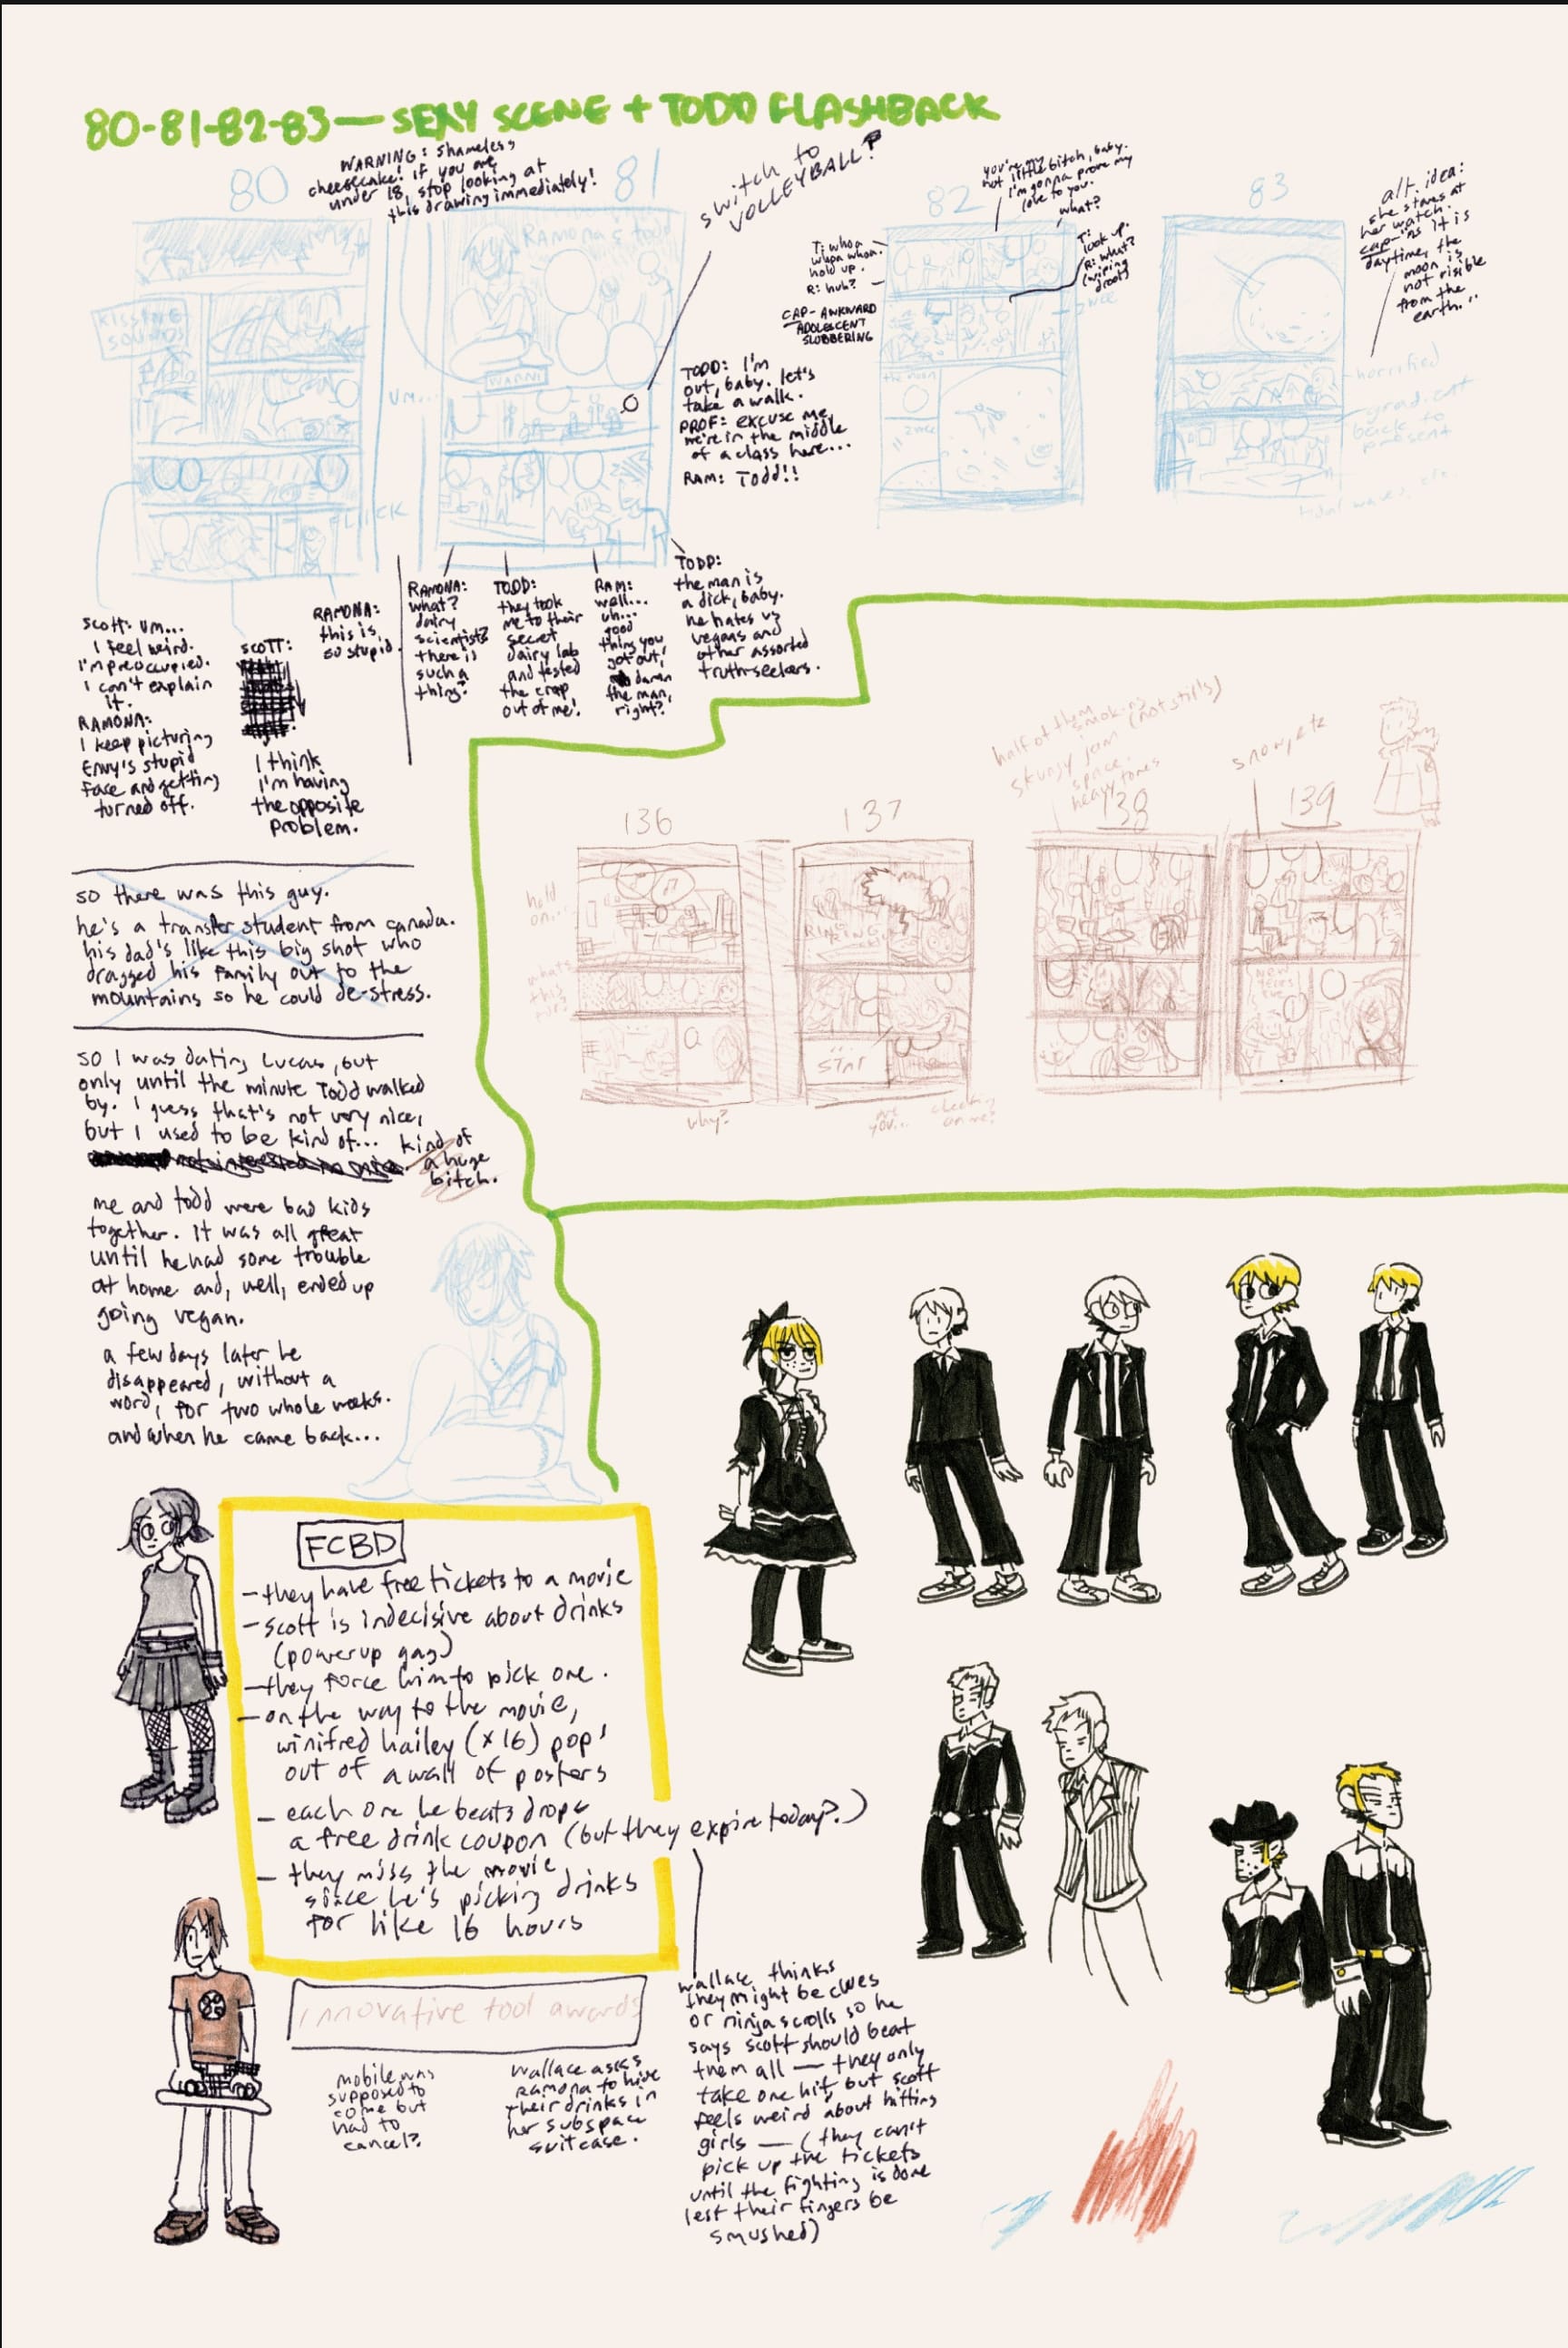 80-81-82-83 — SEXY SCENE + TODD FLASHBACK
80
WARNING: shameless
cheesecake! if you are
under 18, stop looking at
this drawing immediately!
81
switch to
VOLLEYBALL?
82
you're my
hot little bitch, baby.
I'm gonna prove my
love to you.
what?
83
alt. idea:
she stares at
her watch.
cap- "as it is
daytime, the
moon is
not visible
from the
earth."
T: whoa
whoa whoa.
hold up.
R: huh?
CAP- AWKWARD
ADOLESCENT
SLOBBERING
T:
look up.
R: what?
(wiping
drool)
KISSING
SOUNDS
RAMONA & TODD
WARNI
UM...
CLICK
the moon
horrified
gradient
back to
present
tidal waves, etc.
TODD: I'm
out, baby. let's
take a walk.
PROF: excuse me,
we're in the middle
of a class here...
RAM: Todd!!
scott: um...
I feel weird.
I'm preoccupied.
I can't explain
it.
RAMONA:
I keep picturing
Envy's stupid
face and getting
turned off.
SCOTT:
I think
I'm having
the opposite
problem.
RAMONA:
this is
so stupid.
RAMONA:
what?
dairy
scientists?
there is
such a
thing?
TODD:
they took
me to their
secret
dairy lab
and tested
the crap
out of me!
RAM:
well...
uh...
good
thing you
got out,
damn
the man,
right?
TODD:
the man is
a dick, baby.
he hates us
vegans and
other assorted
truth-seekers.
so there was this guy.
he's a transfer student from canada.
his dad's like this big shot who
dragged his family out to the
mountains so he could de-stress.
so I was dating Lucas, but
only until the minute Todd walked
by. I guess that's not very nice,
but I used to be kind of... kind of
a huge
bitch.
me and todd were bad kids
together. it was all great
until he had some trouble
at home and, well, ended up
going vegan.
a few days later he
disappeared, without a
word, for two whole weeks.
and when he came back...
half of them smoking (not stills)
skungy jam
space.
heavy tones
snow, etc
136
137
138
139
hold
on...
what's
this
for?
RINRING
START
NEW
YEARS
EVE
why?
are
you...
checking
on me?
FCBD
- they have free tickets to a movie
- scott is indecisive about drinks
(powerup gag)
- they force him to pick one.
- on the way to the movie,
winifred hailey (x16) pops
out of a wall of posters
- each one he beats drops
a free drink coupon (but they expire today?)
- they miss the movie
since he's picking drinks
for like 16 hours
innovative tool awards
mobile was
supposed to
come but
had to
cancel?
wallace asks
ramona to hide
their drinks in
her subspace
suitcase.
wallace thinks
they might be clues
or ninja scrolls so he
says scott should beat
them all — they only
take one hit, but scott
feels weird about hitting
girls — (they can't
pick up the tickets
until the fighting is done
lest their fingers be
smushed)